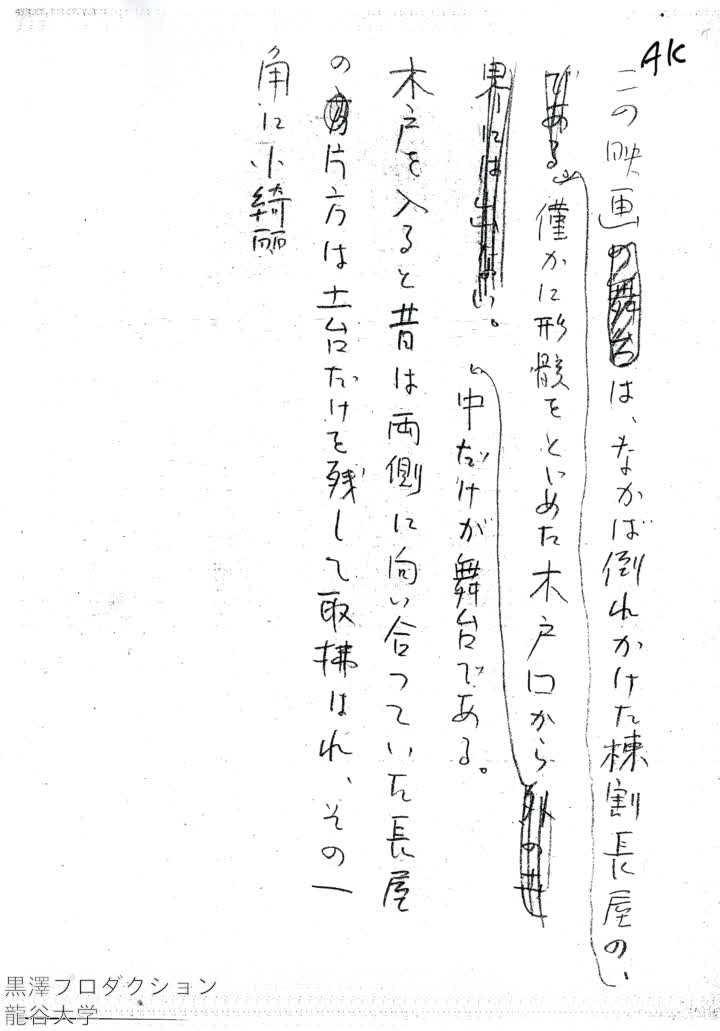 AK
この映画の舞台は、なかば倒れかけた棟割長屋の、
である。僅かに形骸をとゞめた木戸口から外の世
界には出ない。中だけが舞台である。
木戸を入ると昔は両側に向い合つていた長屋
の片方は土台だけを残して取拂はれ、その一
角に小綺麗
黒澤プロダクション
龍谷大学